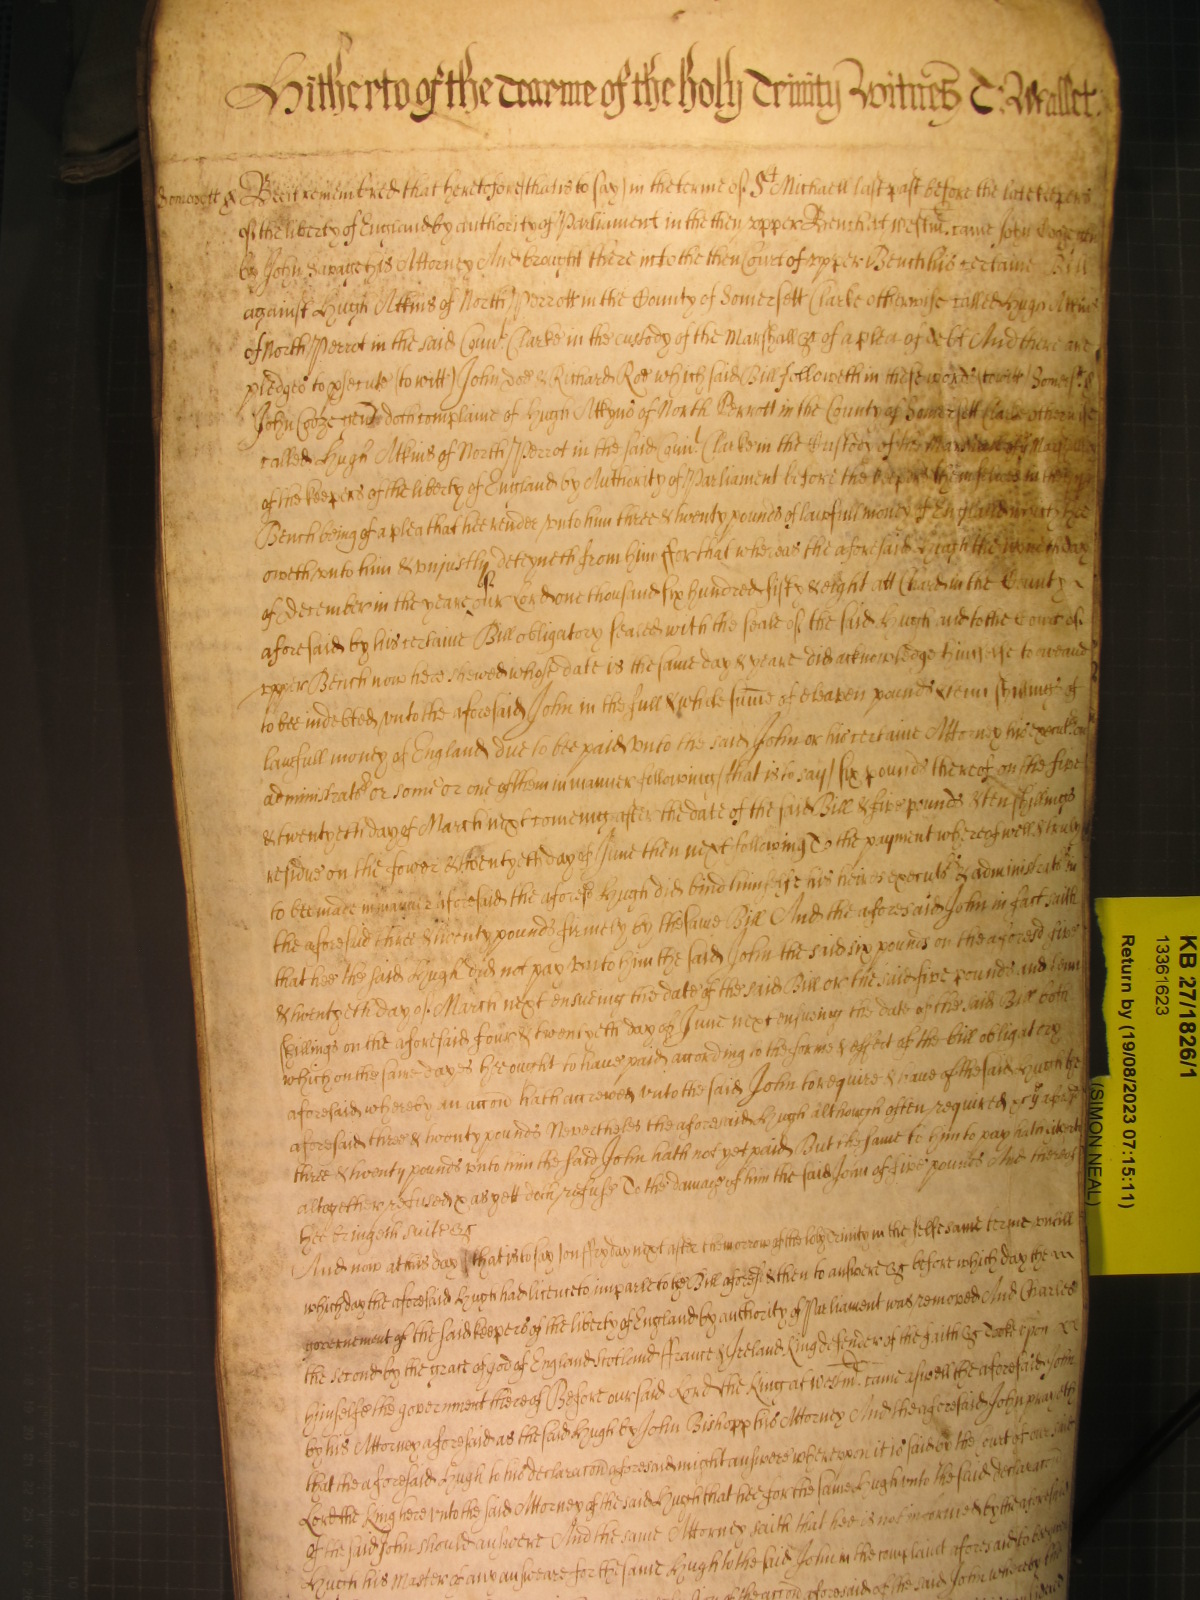 Hitherto of the Tearme of the holy Trinity Witnes T: Mallet.
Somersett ss Bee it remembred that heretofore (that is to say) in the terme of St Michaell last past before the late keepers
of the liberty of England by authority of Parliament in the then vpper Bench at Westmr. came John Cooze gent
by John Savage his Attorney And brought there into the then Court of vpper Bench his certaine Bill
against Hugh Atkins of North Perrott in the County of Somersett Clarke otherwise called Hugh Atkins
of North Perrot in the said County Clarke in the custody of the Marshall &c of a plea of debt And there are
pledges to psecute (to witt) John Doe & Richard Roe which said Bill followeth in these words (to witt) Somersett ss
John Cooze gent doth complaine of Hugh Atkyns of North Perrott in the County of Somersett Clarke otherwise
called Hugh Atkins of North Perrot in the said County Clarke in the Custody of the Marshall of the
of the keepers of the liberty of England by Authority of Parliament before the keepers themselves in the vpper
Bench being of a plea that hee render vnto him three & twenty pounds of lawfull money of England which hee
oweth vnto him & vniustly deteyneth from him ffor that whereas the aforesaid Hugh the day
of December in the yeare of our Lord one thousand six hundred fifty & eight att Chard in the County
aforesaid by his certaine Bill obligatory sealed with the seale of the said Hugh and to the Court of
vpper Bench now here shewed whose date is the same day & yeare did acknowledge himselfe to
to bee indebted vnto the aforesaid John in the full & whole sume of eleaven pounds & tenn shillings of
lawfull money of England due to bee paid vnto the said John or his certaine Attorney his executors
administrators or some or one of them in manner following (that is to say) six pounds thereof on the five
& twentyeth day of March next comeing after the date of the said Bill & five pounds & ten shillings
residue on the fower & twentyeth day of June then next following To the payment whereof well & truly
to bee made in manner aforesaid the aforesd Hugh did bind himselfe his heires executrs & administrators in
the aforesaid three & twenty pounds firmely by the same Bill And the aforesaid John in fact saith
that hee the said Hugh did not pay vnto him the said John the said six pounds on the aforesd five
& twentyeth day of March next ensueing the date of the said Bill or the said five pounds and tenn
shillings on the aforesaid four & twentyeth day of June next ensueing the date of the said Bill both
which on the same dayes he ought to have paid according to the forme & effect of the bill obligatory
aforesaid whereby an accon hath accrewed vnto the said John to require & have of the said Hugh the
aforesaid three & twenty pounds Neverthelesse the aforesaid Hugh although often required the
three & twenty pounds vnto him the said John hath not yet paid But the same to him to pay hath
altogether refused & as yett doth refuse To the damage of him the said John of five pounds And thereof
hee bringeth suite &c
And now at this day (that is to say) on ffryday next after the morrow of the holy Trinity in the selfe same terme vntill
which day the aforesaid Hugh had licence to imparle to the Bill aforesd & then to answere &c before which day the
governement of the said keepers of the liberty of England by authority of Parliament was removed And Charles
the second by the grace of god of England Scotland ffrance & Ireland King defender of the faith &c Tooke vpon
himselfe the government thereof Before our said Lord the King at Westmr. came aswell the aforesaid John
by his Attorney aforesaid as the said Hugh by John Bishopp his Attorney And the aforesaid John prayeth
that the aforesaid Hugh to his declaracon aforesaid might answere wherevpon it is said by the court of our said
Lord the King here vnto the said Attorney of the said Hugh that hee for the same Hugh vnto the said declaracon
of the said John should answere And the same Attorney saith that hee is not informed by the aforesaid
Hugh his Master of any answeare for the same Hugh to the said John in the complaint aforesaid to bee
of the accon aforesaid of the said John whereby the
KB 27/1826/1
13361623
Return by (19/08/2023 07:15:11)
(SIMON NEAL)